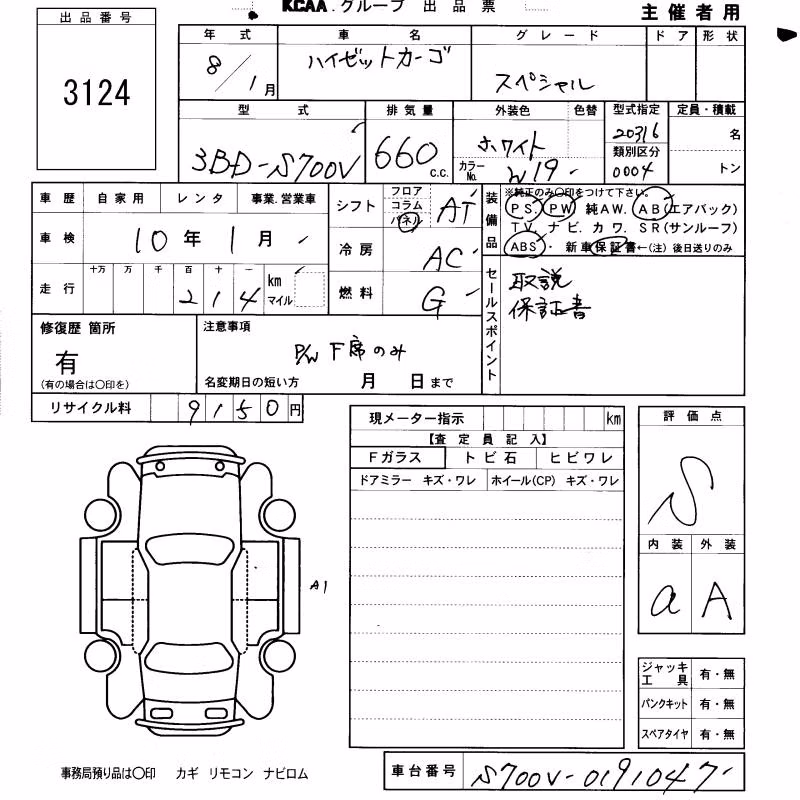 KCAA.グループ 出品票
主催者用
出品番号
3124
年式 車名 グレード ドア 形状
8/1月 ハイゼットカーゴ スペシャル
型式 排気量 外装色 色替 型式指定 定員・積載
3BD-S700V 660 c.c. ホワイト 20316 名
カラーNo. W19 類別区分 0004 トン
車歴 自家用 レンタ 事業.営業車
車検 10年1月
走行 十万 万 千 百 十 一 km マイル
214
シフト フロア コラム パネル AT
冷房 AC
燃料 G
装備品 ※純正のみ〇印をつけて下さい。
PS. PW 純AW. AB(エアバック)
TV. ナビ. カワ. SR(サンルーフ)
ABS・新車保証書←(注)後日送りのみ
セールスポイント 取説
保証書
修復歴 箇所
有
(有の場合は〇印を)
注意事項
P/W F席のみ
名変期日の短い方 月 日まで
リサイクル料 9150円
現メーター指示 km
【査定員記入】
Fガラス トビ石 ヒビワレ
ドアミラー キズ・ワレ ホイール(CP) キズ・ワレ
A1
評価点
S
内装 外装
a A
ジャッキ工具 有・無
パンクキット 有・無
スペアタイヤ 有・無
事務局預り品は〇印 カギ リモコン ナビロム
車台番号 S700V-0191047